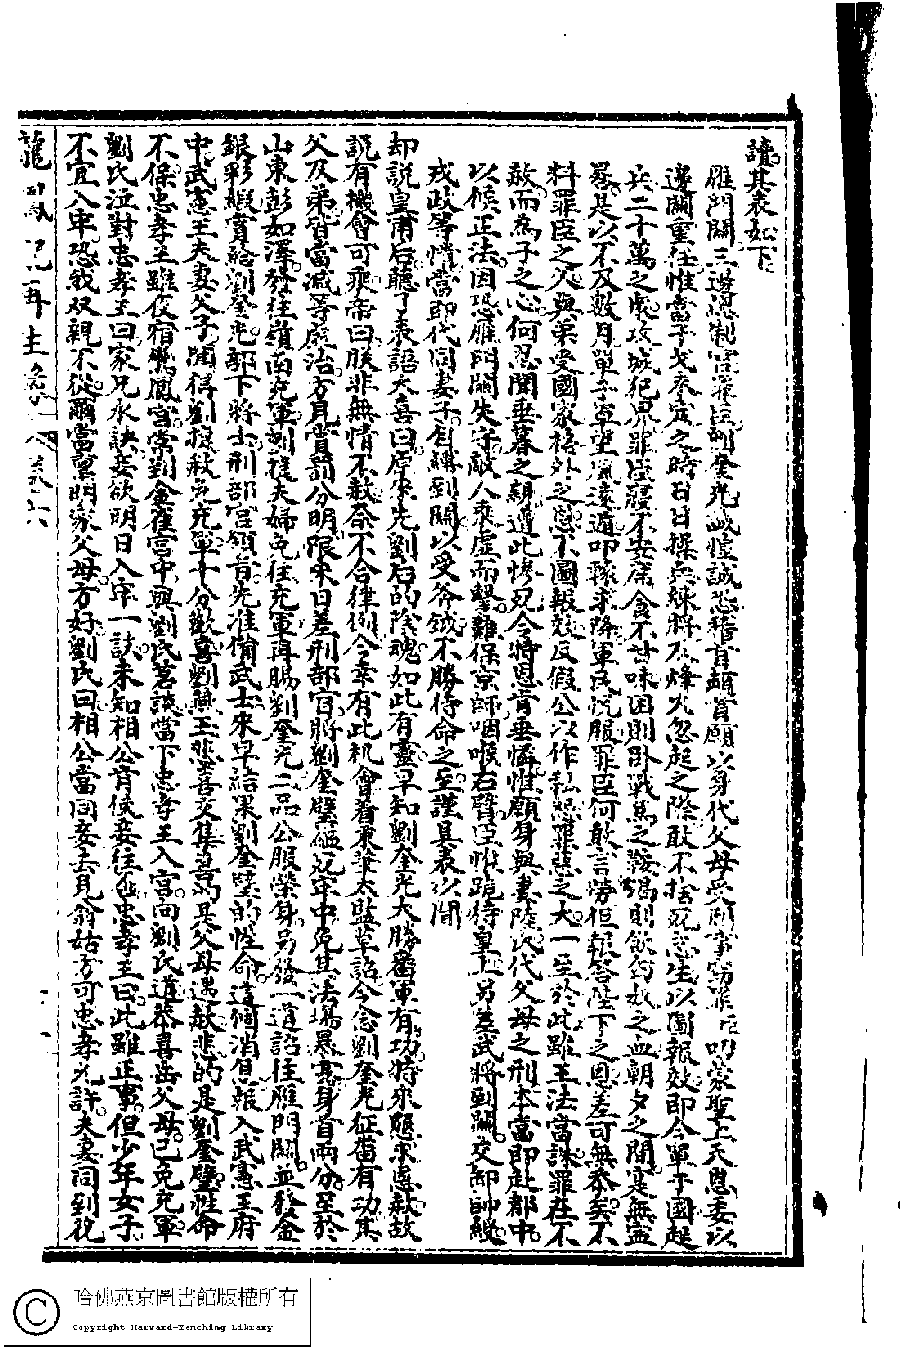 讀其表如下
雁門關三邊總制官罪臣劉奎光誠惶誠恐稽首頓首願以身代父母受刑事竊罪臣叨蒙聖上天恩委以
邊關重任惟當干戈奉定之時日日操兵練將及烽火忽起之際敢不捨死忘生以圖報效即今單于國起
兵二十萬之眾攻城犯界罪臣寢不安席食不甘味困則臥戰馬之鞍渴則飲匈奴之血朝夕之間寔無
是以不及數月單于軍望風遠遁叩轅求降軍民悅服罪臣何敢言勞但報答陛下之恩差可無忝矣不
料罪臣之父與弟受國家格外之恩不圖報效反假公以作私怨罪惡之大一至於此雖王法當誅罪在不
赦而為子之心何忍聞垂暮之親遭此慘刃今特恩肯垂憐惟願身與妻陸氏代父母之刑本當即赴都中
以候正法因恐雁門關失守敵人乘虛而擊難保京師咽喉右臂臣惟跪待皇上另差武將到關交卸帥綬
戎政等情當即代同妻子自縛到關以受斧鉞不勝待命之至謹具表以聞
却說皇甫后聽了表詔大喜曰原來先劉后的陰魂如此有靈早知劉奎光大勝番軍有功特來懇求恩赦故
說有機會可乘帝曰朕非無情不赦奈不合律例今幸有此机會着秉筆太監草詔今念劉奎光征番有功其
父及弟皆當減等處治方見賞罰分明限來日差刑部官將劉奎璧縊死牢中免其法場暴露身首兩分至於
山東彭如澤發往嶺南充軍劉捷夫婦免往充軍再賜劉奎光二品公服榮身另發一道詔往雁門關並發金
銀彩緞賞給劉奎光部下將士刑部官領旨先准備武士來早結果劉奎璧的性命這個消息報入武憲王府
中武憲王夫妻父子聞得劉捷赦免充軍十分歡喜劉燕玉悲喜交集喜的是父母遇赦悲的是劉奎璧性命
不保忠孝王雖夜宿鸞鳳宮常到金雀宮中與劉氏茗談當下忠孝王入宮向劉氏道恭喜岳父母已免充軍
劉氏泣對忠孝王曰家兄永訣妾欲明日入牢一訣未知相公肯使妾往否忠孝王曰此雖正事但少年女子
不宜入牢恐我双親不從爾當稟明家父母方好劉氏曰相公當同妾去見翁姑方可忠孝允許夫妻同到後
龍鳳再生緣